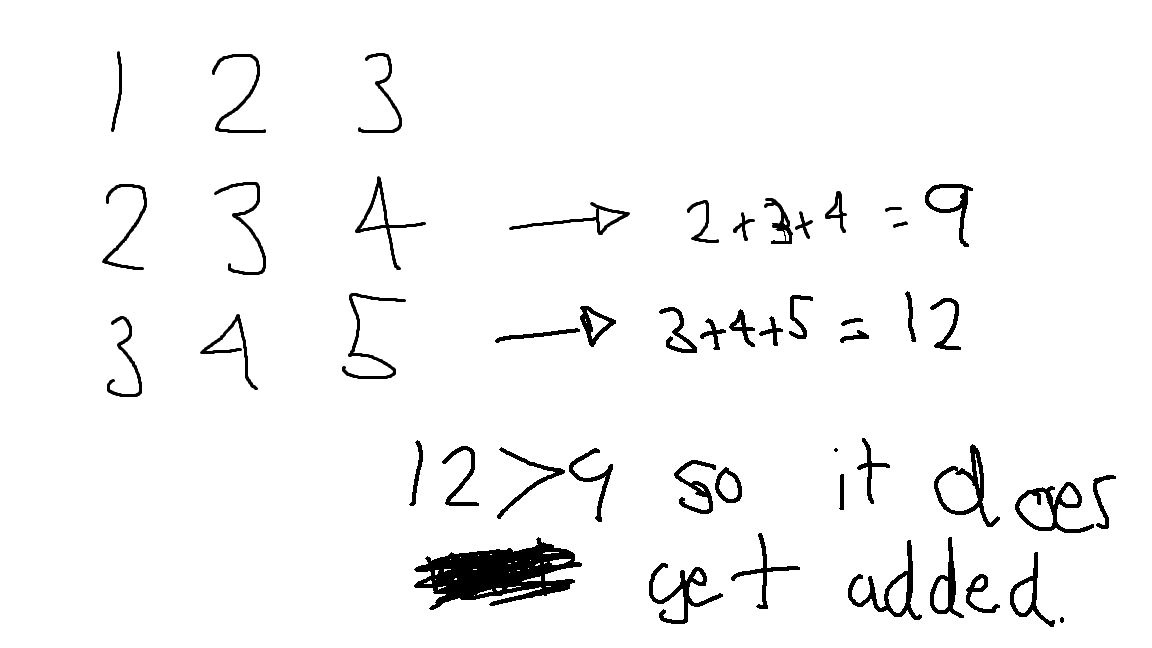 1 2 3
2 3 4 → 2+3+4 = 9
3 4 5 → 3+4+5 = 12
12>9 so it does
get added.